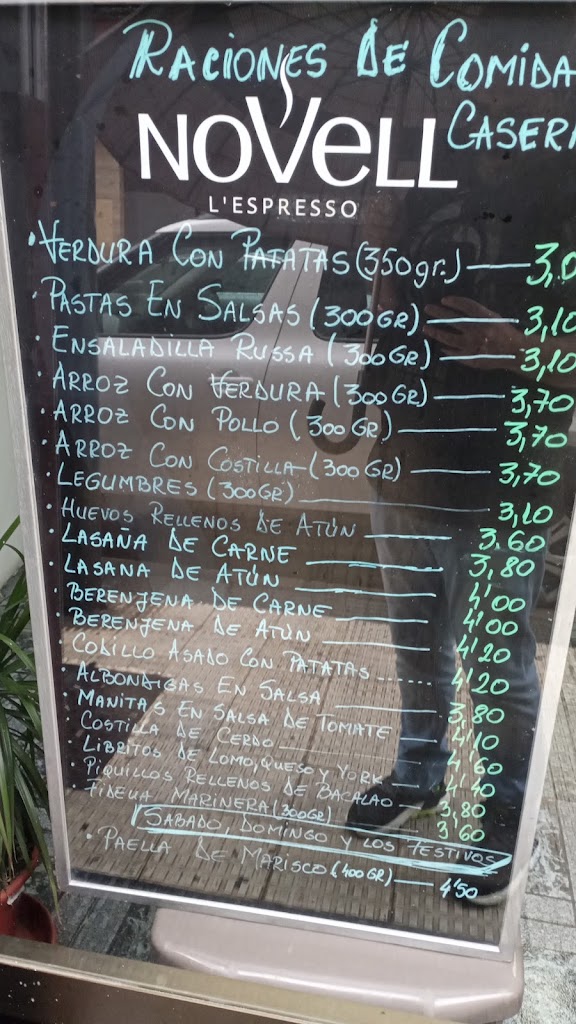 RACIONES DE COMIDA
CASERA
NOVELL
L'ESPRESSO
· VERDURA CON PATATAS (350gr.) — 3,0
· PASTAS EN SALSAS (300GR) — 3,10
· ENSALADILLA RUSSA (300GR) — 3,10
· ARROZ CON VERDURA (300GR) — 3,70
· ARROZ CON POLLO (300GR) — 3,70
· ARROZ CON COSTILLA (300GR) — 3,70
· LEGUMBRES (300GR) — 3,10
· HUEVOS RELLENOS DE ATÚN — 3.60
· LASAÑA DE CARNE — 3,80
· LASANA DE ATÚN — 4'00
· BERENJENA DE CARNE — 4'00
· BERENJENA DE ATÚN — 4'20
· CODILLO ASADO CON PATATAS ...... 4'20
· ALBONDIGAS EN SALSA — 3,80
· MANITAS EN SALSA DE TOMATE — 4'10
· COSTILLA DE CERDO — 4'60
· LIBRITOS DE LOMO, QUESO Y YORK — 4'40
· PIQUILLOS RELLENOS DE BACALAO — 3,80
· FIDEUA MARINERA (300GR) — 3'60
SABADO, DOMINGO Y LOS FESTIVOS
· PAELLA DE MARISCO (400GR) — 4'50